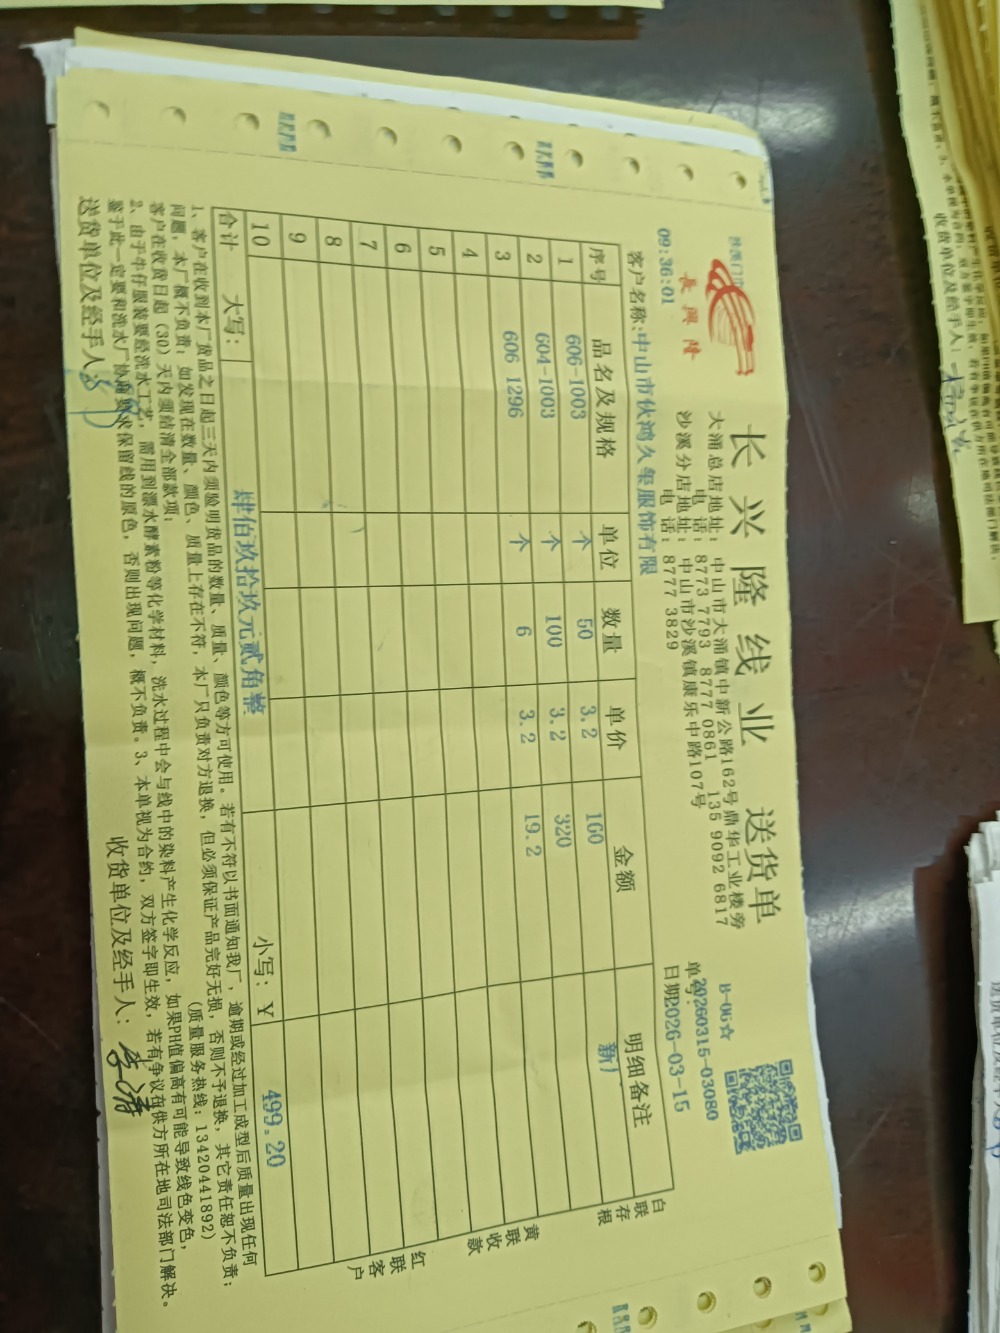 长兴隆线业 送货单
長興隆
大涌总店地址：中山市大涌镇中新公路162号鼎华工业楼旁
电 话：8773 7793 8777 0861 135 9092 6817
沙溪分店地址：中山市沙溪镇康乐中路107号
电 话：8777 3829
B-06☆
单号：20260315-03080
日期2026-03-15
09:36:01
客户名称:中山市伙鸿久玺服饰有限
序号 品名及规格 单位 数量 单价 金额 明细备注
1 606-1003 个 50 3.2 160 新厂
2 604-1003 个 100 3.2 320
3 606 1296 个 6 3.2 19.2
4
5
6
7
8
9
10
合计 大写： 肆佰玖拾玖元贰角整 小写：￥ 499.20
白联存根
黄联收款
红联客户
1、客户在收到本厂货品之日起三天内须验明货品的数量、质量、颜色等方可使用。若有不符以书面通知我厂，逾期或经过加工成型后质量出现任何
问题，本厂概不负责；如发现在数量、颜色、质量上存在不符，本厂只负责对方退换，但必须保证产品完好无损，否则不予退换，其它责任恕不负责；
客户在收货日起（30）天内须结清全部款项；
(质量服务热线：13420441892)
2、由于牛仔服装要经洗水工艺，需用到漂水酵素粉等化学材料，洗水过程中会与线中的染料产生化学反应，如果PH值偏高有可能导致线色变色，
鉴于此一定要和洗水厂协商要求保留线的原色，否则出现问题，概不负责。3、本单视为合约，双方签字即生效，若有争议在供方所在地司法部门解决。
送货单位及经手人：
收货单位及经手人：李清
收货单位及经手人：